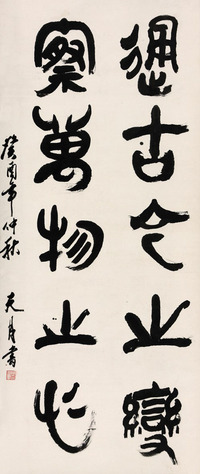 通古今之變
察萬物之
癸酉年仲秋
書